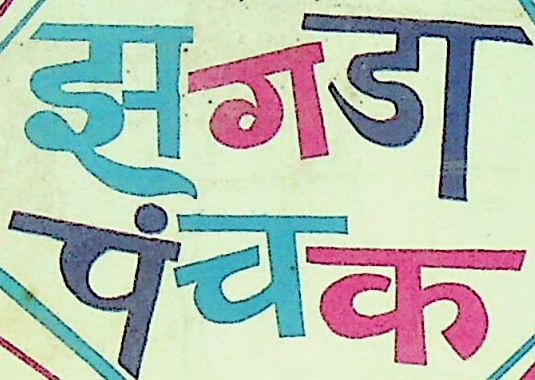 झगडा
पंचक